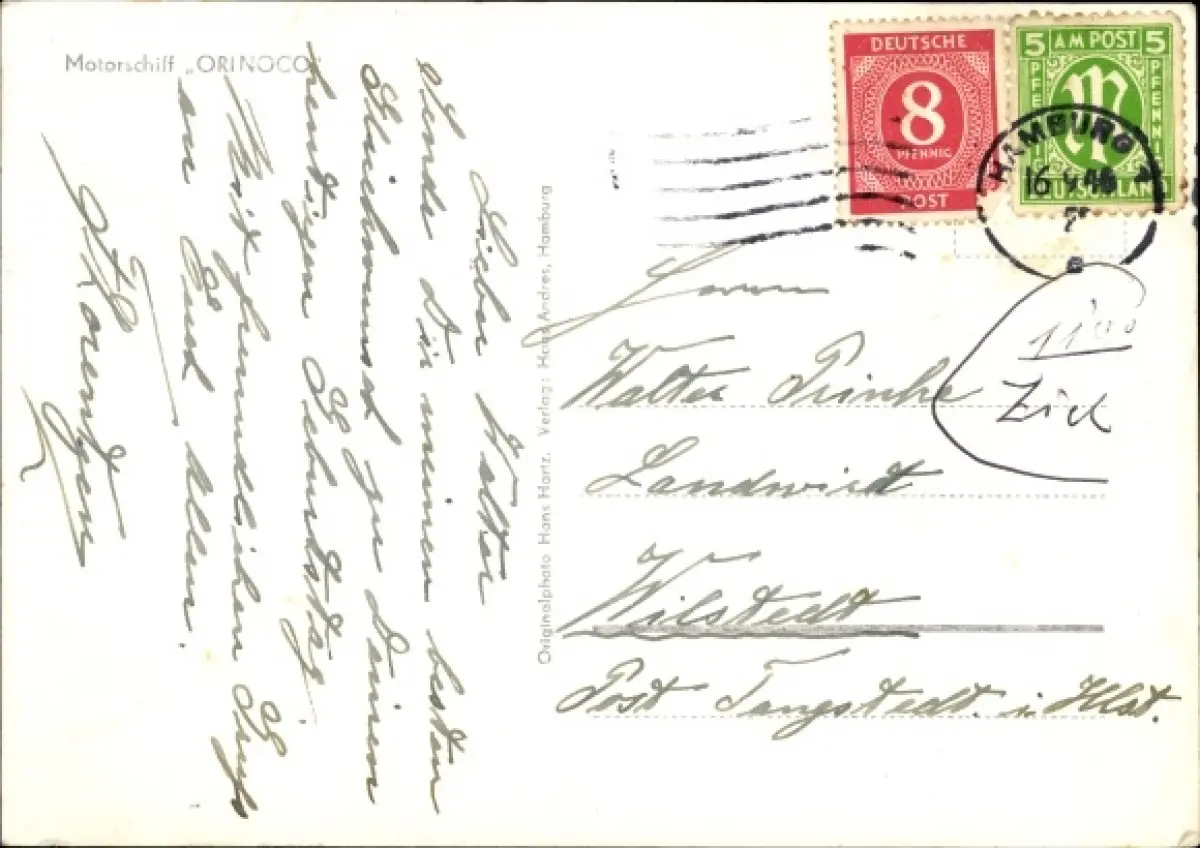 Motorschiff „ORINOCO“
Lieber Walter
Sende Dir meinen besten
Glückwunsch zu Deinem
heutigen Geburtstag.
Mit freundlichem Gruß
an Euch Allen.
Originalphoto Hans Hartz, Verlag: Hans Andres, Hamburg
DEUTSCHE
8
PFENNIG
POST
5 AM POST 5
PFENNIG
PFENNIG
M
DEUTSCHLAND
HAMBURG
16
Herrn
Walter
Landwirt
Wilstedt
Post Tangstedt i. Hlst.